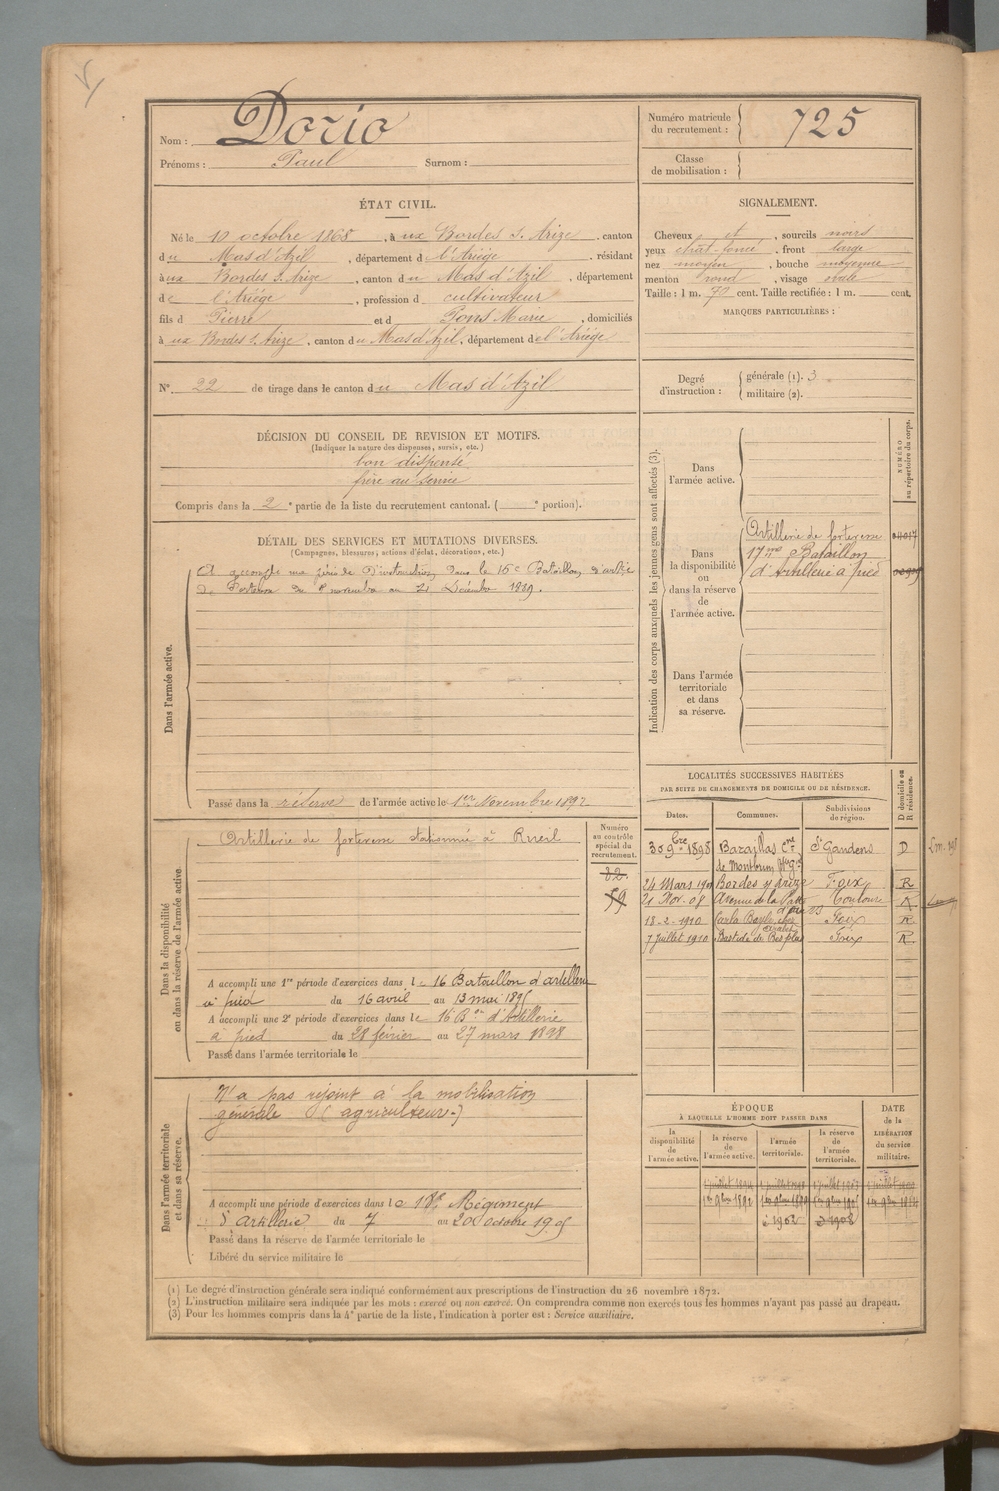 Nom : Dorio
Prénoms : Paul Surnom :
Numéro matricule du recrutement : 725
Classe de mobilisation :
ÉTAT CIVIL.
Né le 10 octobre 1868, à ux Bordes s. Arize, canton
du Mas d'Azil, département de l'Ariège, résidant
à ux Bordes s. Arize, canton du Mas d'Azil, département
de l'Ariége, profession d cultivateur
fils d Pierre et d Pons Marie, domiciliés
à ux Bordes s. Arize, canton du Mas d'Azil, département de l'Ariége
SIGNALEMENT.
Cheveux et, sourcils noirs
yeux chât. foncé, front large
nez moyen, bouche moyenne
menton rond, visage ovale
Taille : 1 m. 70 cent. Taille rectifiée : 1 m. cent.
MARQUES PARTICULIÈRES :
N° 22 de tirage dans le canton du Mas d'Azil
Degré d'instruction : générale (1). 3
militaire (2).
DÉCISION DU CONSEIL DE REVISION ET MOTIFS.
(Indiquer la nature des dispenses, sursis, etc.)
bon dispensé
frère au service
Compris dans la 2e partie de la liste du recrutement cantonal. ( e portion).
DÉTAIL DES SERVICES ET MUTATIONS DIVERSES.
(Campagnes, blessures, actions d'éclat, décorations, etc.)
Dans l'armée active.
A accompli une période d'instruction dans le 16e Bataillon d'artie
de forteresse du novembre au Décembre 1889.
Passé dans la réserve de l'armée active le 1er Novembre 1892
Indication des corps auxquels les jeunes gens sont affectés (3).
NUMÉRO au répertoire du corps.
Dans l'armée active.
Dans la disponibilité ou dans la réserve de l'armée active.
Artillerie de forteresse
17me Bataillon
d'Artillerie à pied
Dans l'armée territoriale et dans sa réserve.
LOCALITÉS SUCCESSIVES HABITÉES
PAR SUITE DE CHANGEMENTS DE DOMICILE OU DE RÉSIDENCE.
Dates. Communes. Subdivisions de région. D domicile ou R résidence.
30 9bre 1898 Bazaillas Cne St Gaudens D
de Montbrun
24 Mars Bordes s/ Arize Foix R
21 Nov. 08 Avenue de la Toulouse R
18-2-1910 Carla Bayle Foix R
7 Juillet 1910 Bastide de Besplas Foix R
Dans la disponibilité ou dans la réserve de l'armée active.
Numéro au contrôle spécial du recrutement.
Artillerie de forteresse stationnée à Rueil
59
A accompli une 1re période d'exercices dans le 16 Bataillon d'artillerie
à pied du 16 avril au 13 mai 1895
A accompli une 2e période d'exercices dans le 16 Bon d'Artillerie
à pied du 28 février au 27 mars 1898
Passé dans l'armée territoriale le
Dans l'armée territoriale et dans sa réserve.
N'a pas rejoint à la mobilisation
générale (agriculteur.)
A accompli une période d'exercices dans le 18e Régiment
d'artillerie du 7 au 20 octobre 1905
Passé dans la réserve de l'armée territoriale le
Libéré du service militaire le
ÉPOQUE
À LAQUELLE L'HOMME DOIT PASSER DANS
DATE de la LIBÉRATION du service militaire.
la disponibilité de l'armée active. la réserve de l'armée active. l'armée territoriale. la réserve de l'armée territoriale.
1er 9bre 1892
(1) Le degré d'instruction générale sera indiqué conformément aux prescriptions de l'instruction du 26 novembre 1872.
(2) L'instruction militaire sera indiquée par les mots : exercé ou non exercé. On comprendra comme non exercés tous les hommes n'ayant pas passé au drapeau.
(3) Pour les hommes compris dans la 4e partie de la liste, l'indication à porter est : Service auxiliaire.